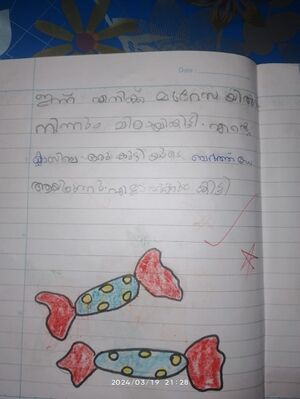 Date
ഇന്ന് എനിക്ക് മദ്റസയിൽ
നിന്നും മിഠായികിട്ടി. എന്റെ
ക്ലാസിലെ ഒരു കുട്ടിയുടെ ബർത്ത്ഡേ
ആയിരുന്നു. എല്ലാവർക്കും കിട്ടി
2024/03/19 21:28